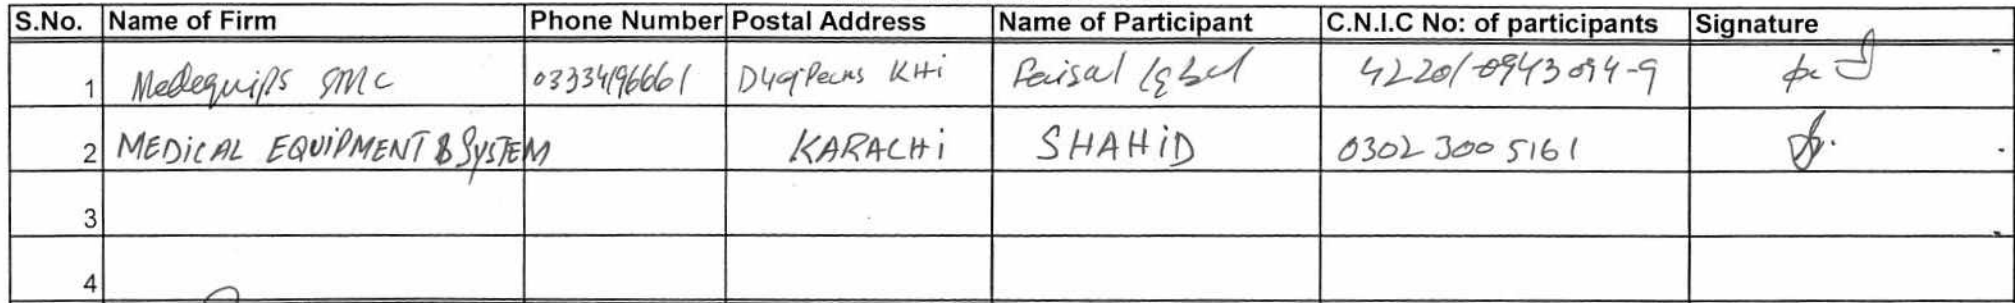 S.No. Name of Firm Phone Number Postal Address Name of Participant C.N.I.C No: of participants Signature
1 Medequips SMC 03334196661 KHi Faisal Iqbal 42201-0943094-9
2 MEDiCAL EQUiPMENT & SYSTEM KARACHi SHAHiD 0302 300 5161
3
4